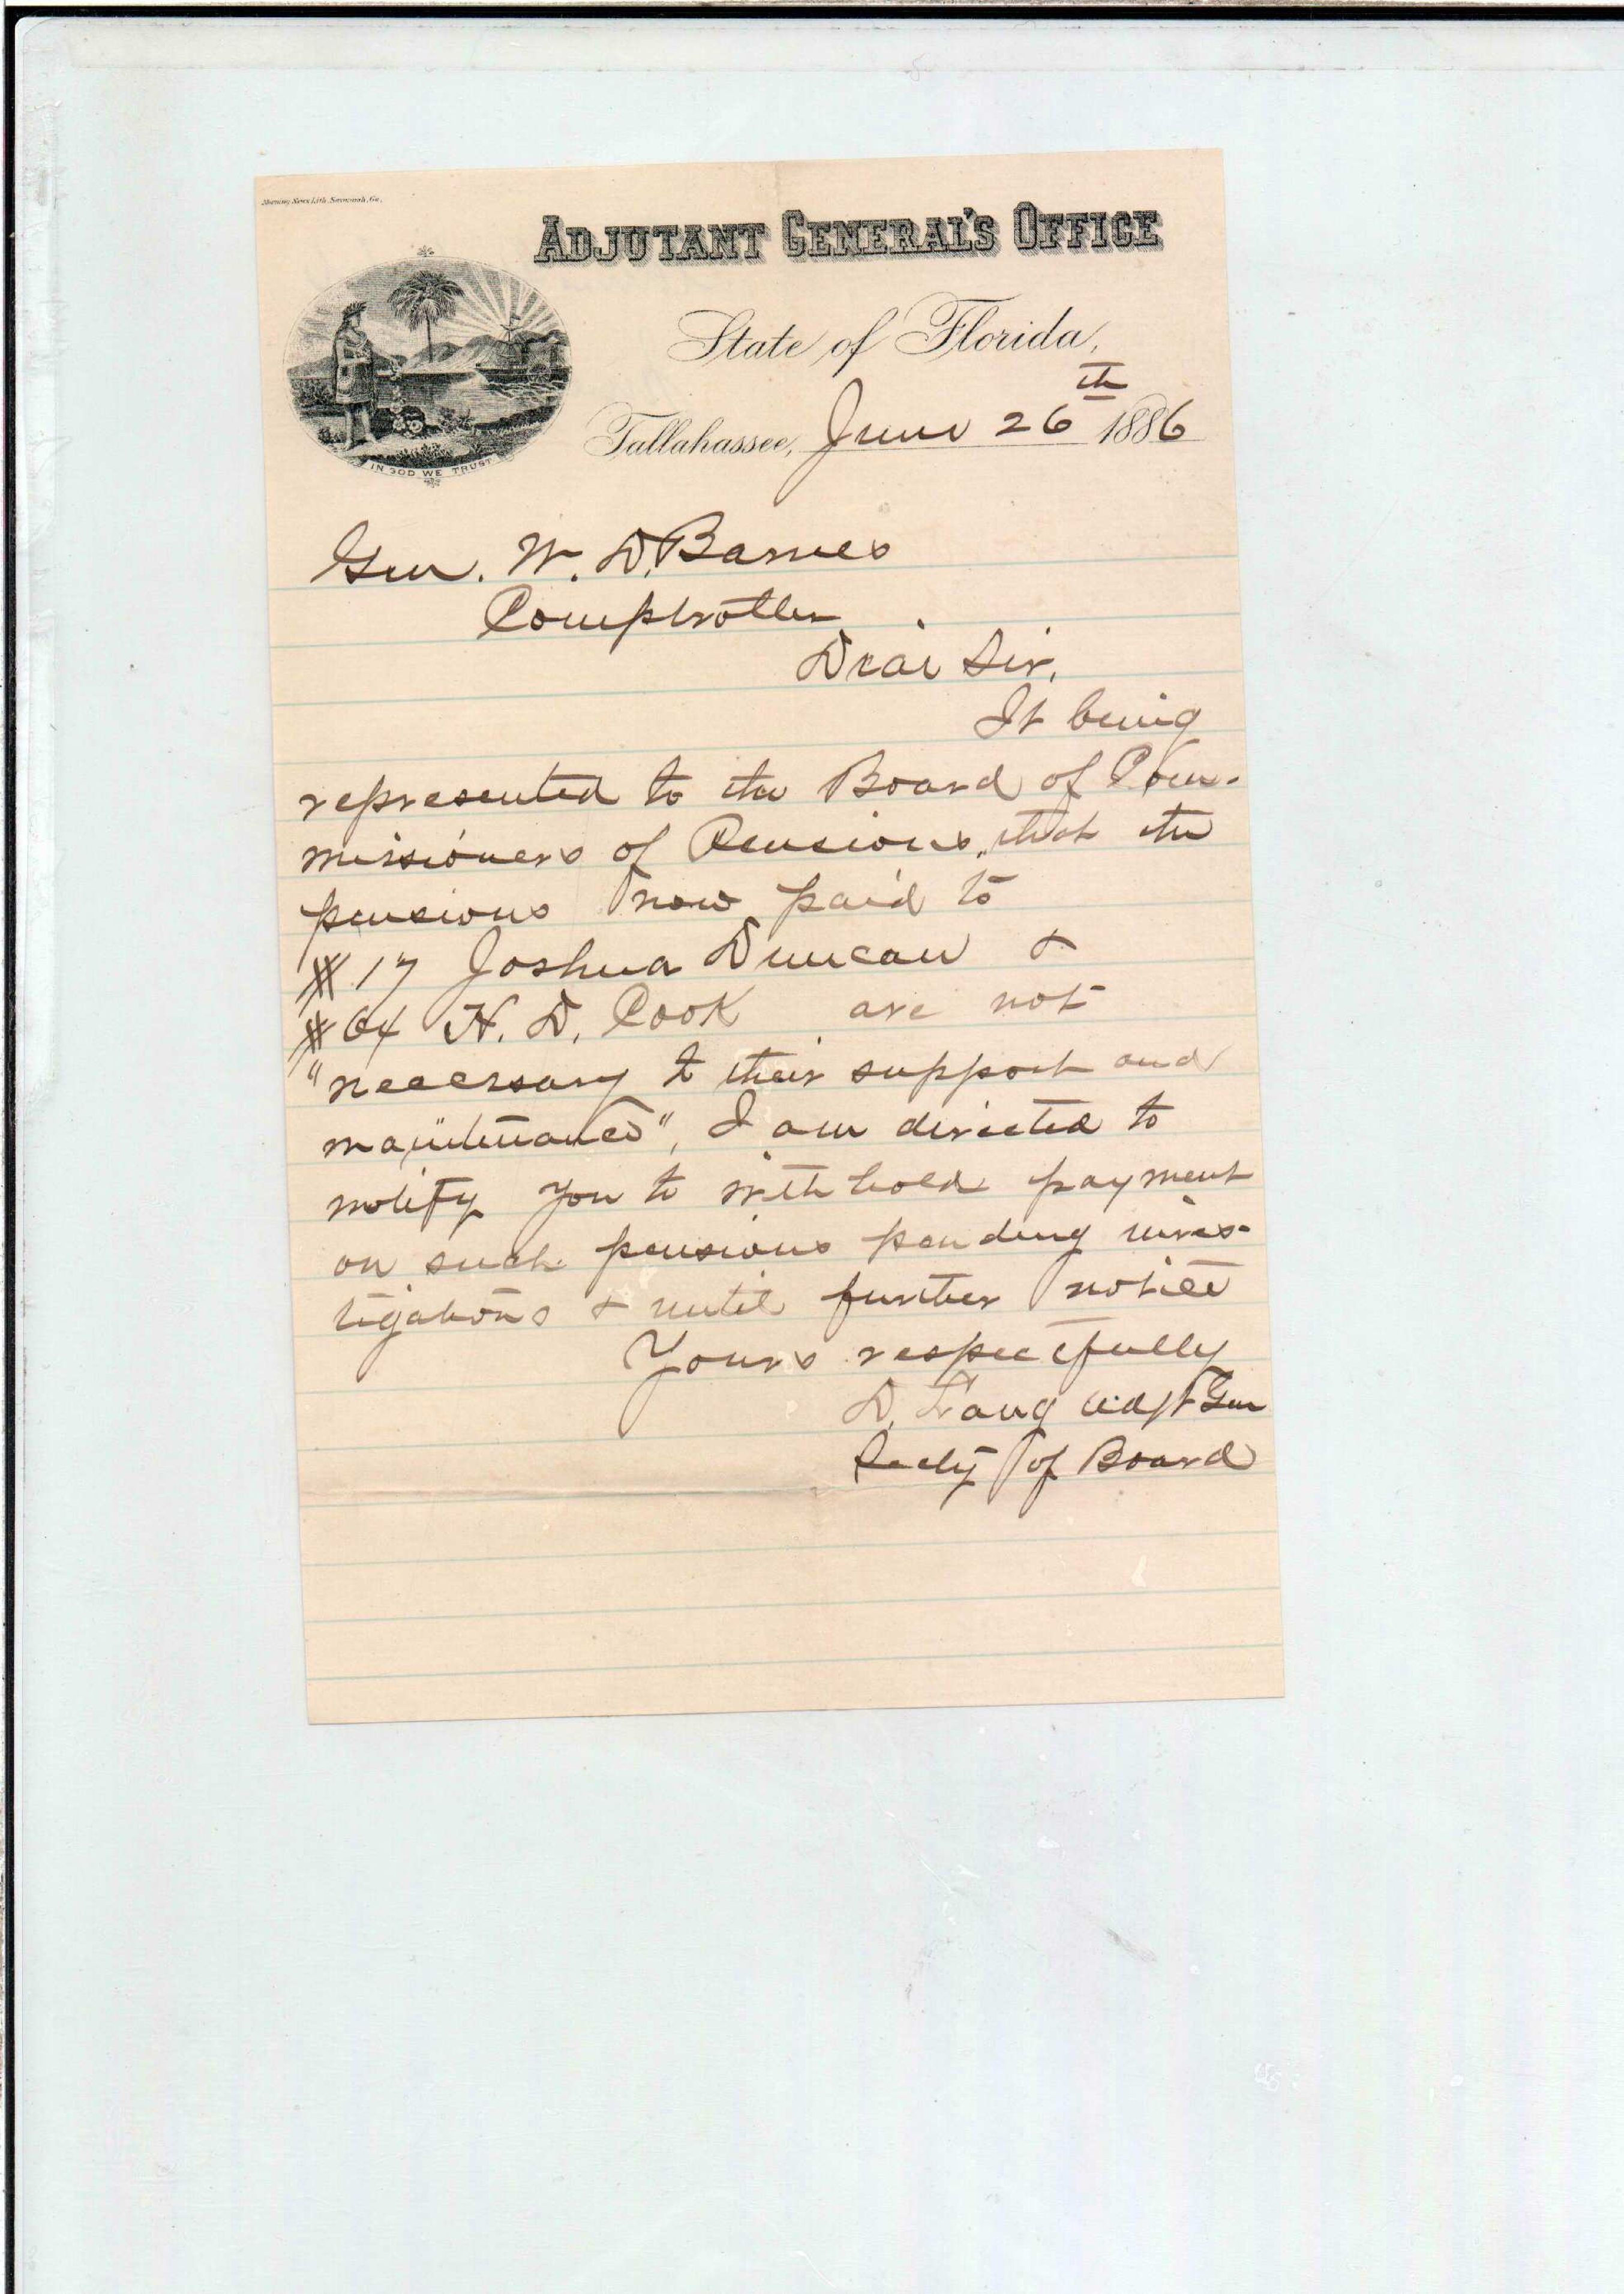 Morning News Lith. Savannah, Ga.
ADJUTANT GENERAL'S OFFICE
State of Florida,
Tallahassee, June 26th 1886
IN GOD WE TRUST
Gen. W. D. Barnes
Comptroller
Dear Sir,
It being
represented to the Board of Com-
missioners of Pensions, that the
pensions now paid to
# 17 Joshua Duncan &
# 64 H. D. Cook are not
"necessary to their support and
maintenance", I am directed to
notify you to withhold payment
on such pensions pending inves-
tigations & until further notice
Yours respectfully
D. Lang Adjt Gen
Secty of Board